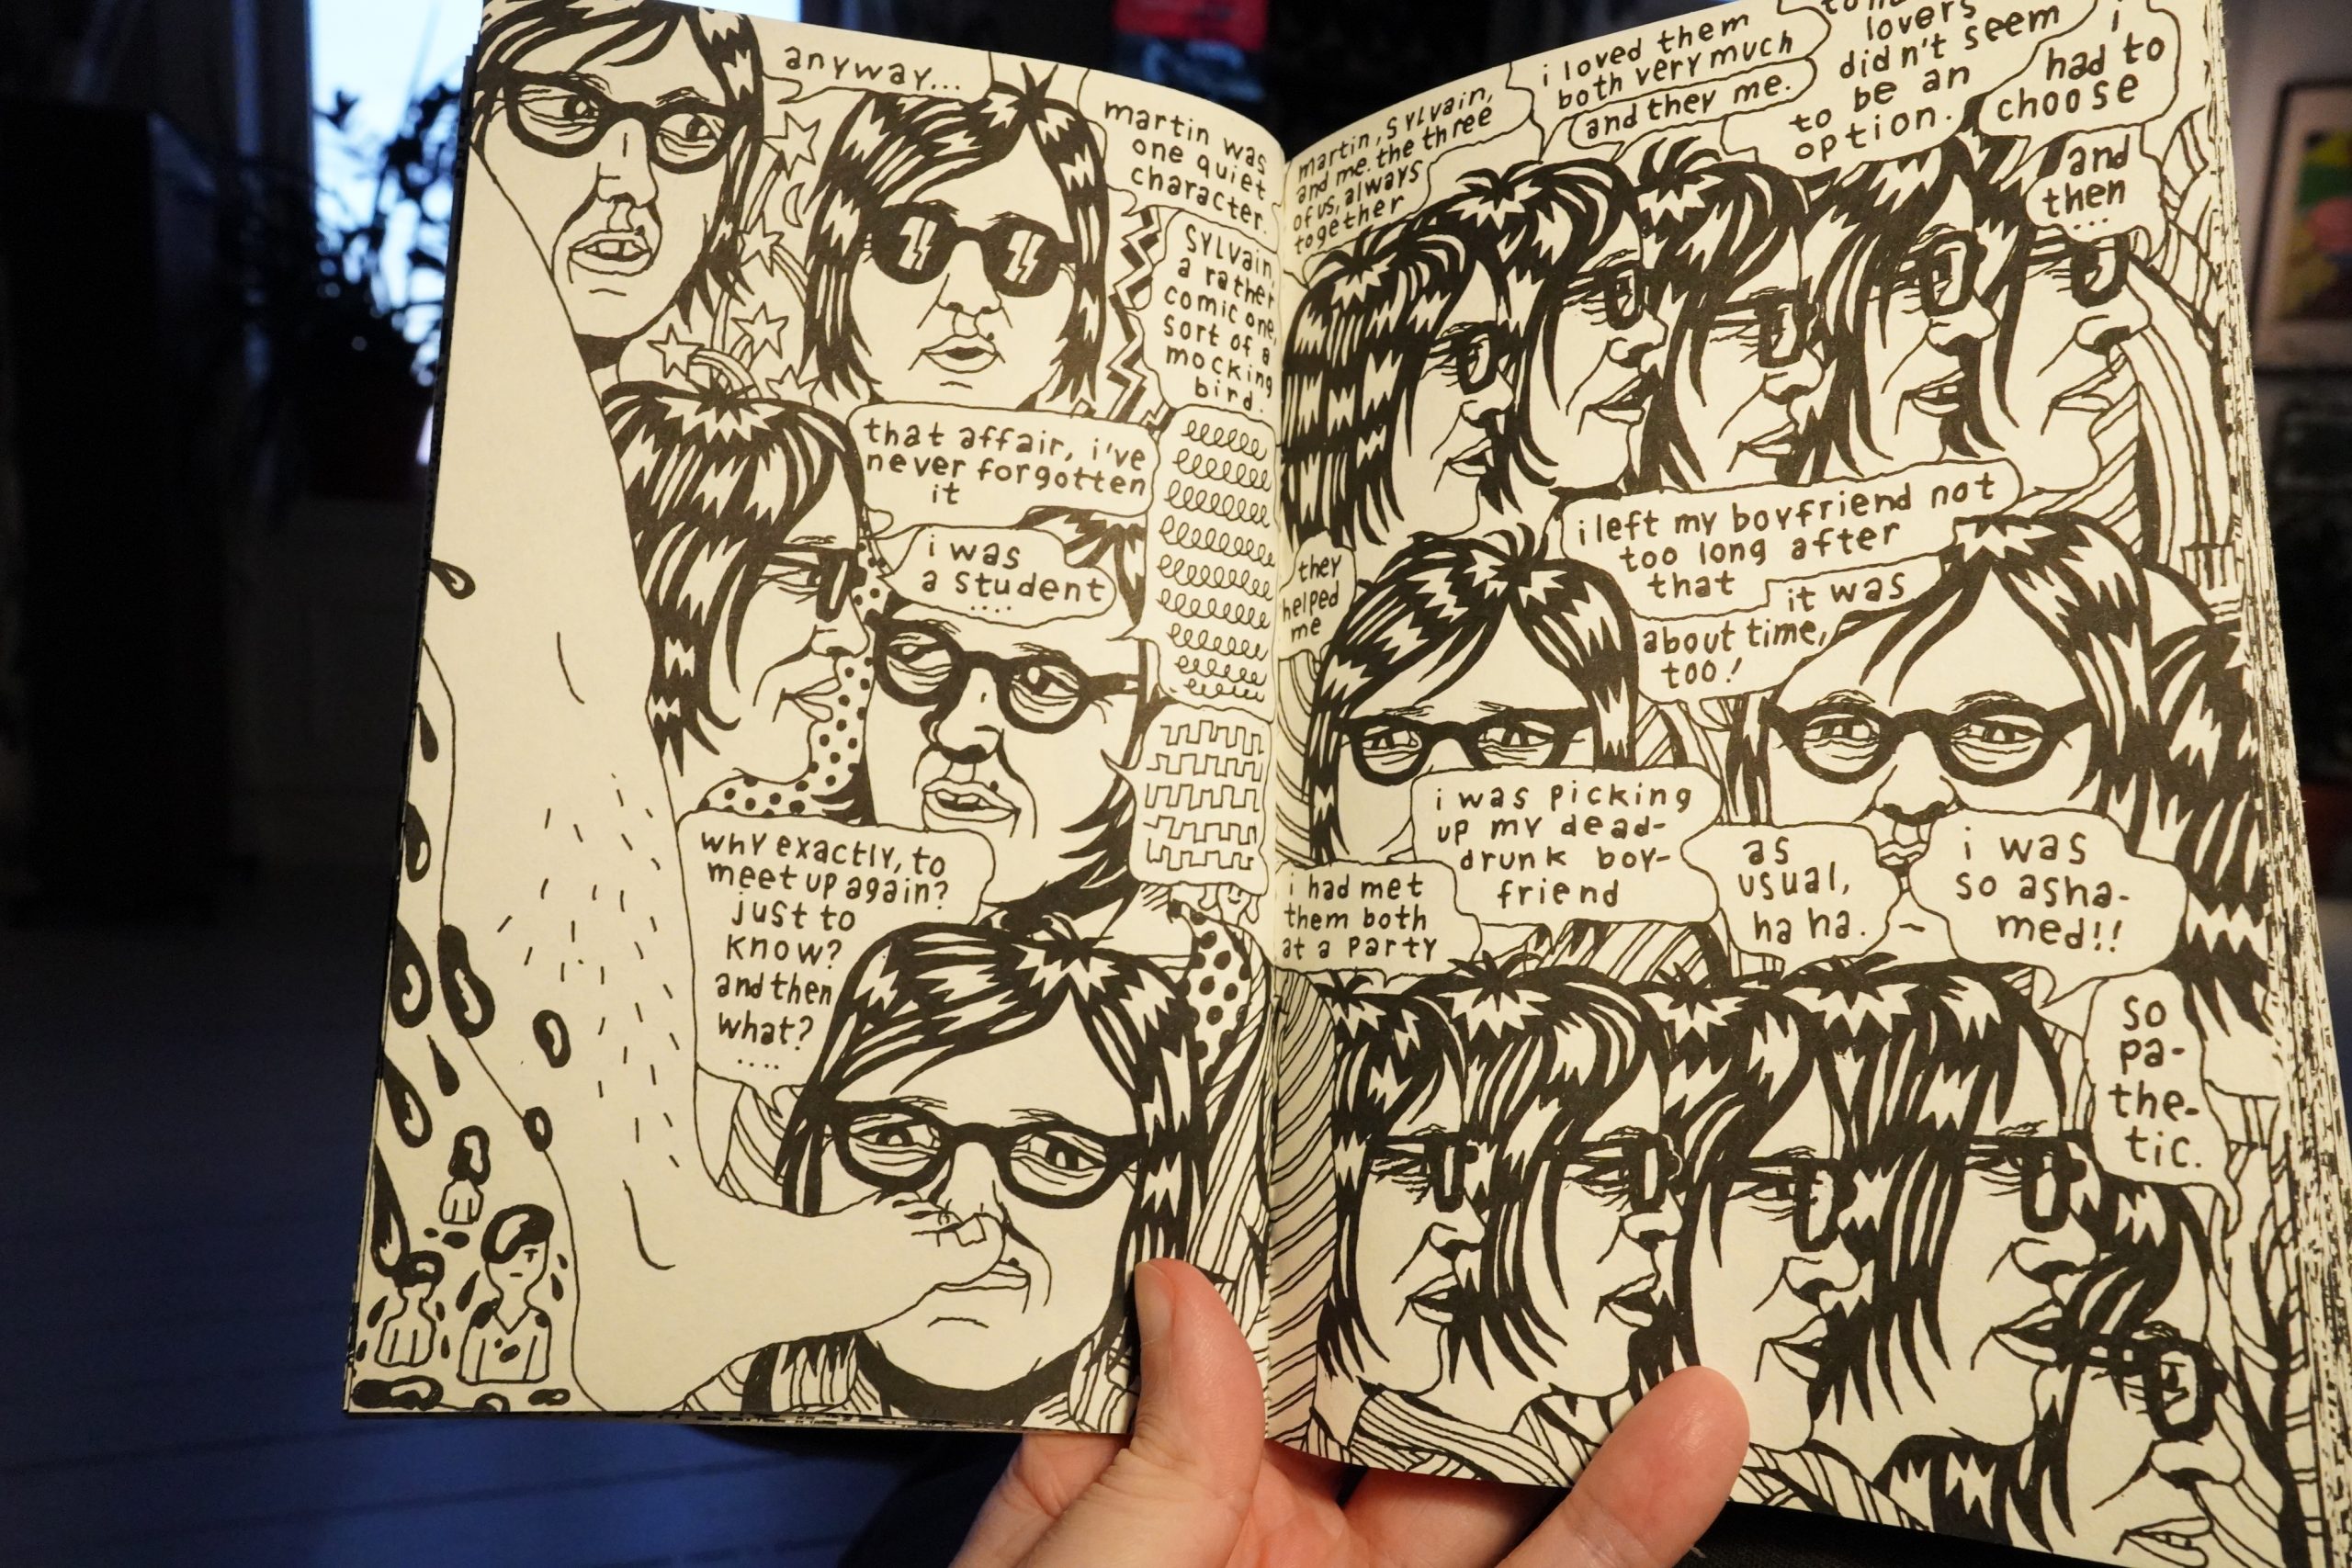 anyway...
martin was
one quiet
character.
sylvain,
a rather
comic one,
sort of a
mocking
bird.
that affair, i've
never forgotten
it
i was
a student
....
why exactly, to
meet up again?
just to
know?
and then
what?
....
martin, sylvain,
and me. the three
of us, always
together
i loved them
both very much
and they me.
lovers
didn't seem
to be an
option.
i
had to
choose
and
then
...
they
helped
me
i left my boyfriend not
too long after
that
it was
about time,
too!
i had met
them both
at a party
i was picking
up my dead-
drunk boy-
friend
as
usual,
ha ha.
i was
so asha-
med!!
so
pa-
the-
tic.